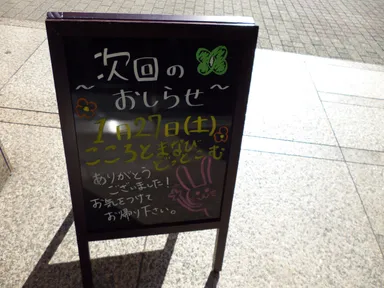 次回の
～おしらせ～
1月27日(土)
こころとまなび
どっとこむ
ありがとう
ございました!
お気をつけて
お帰り下さい。